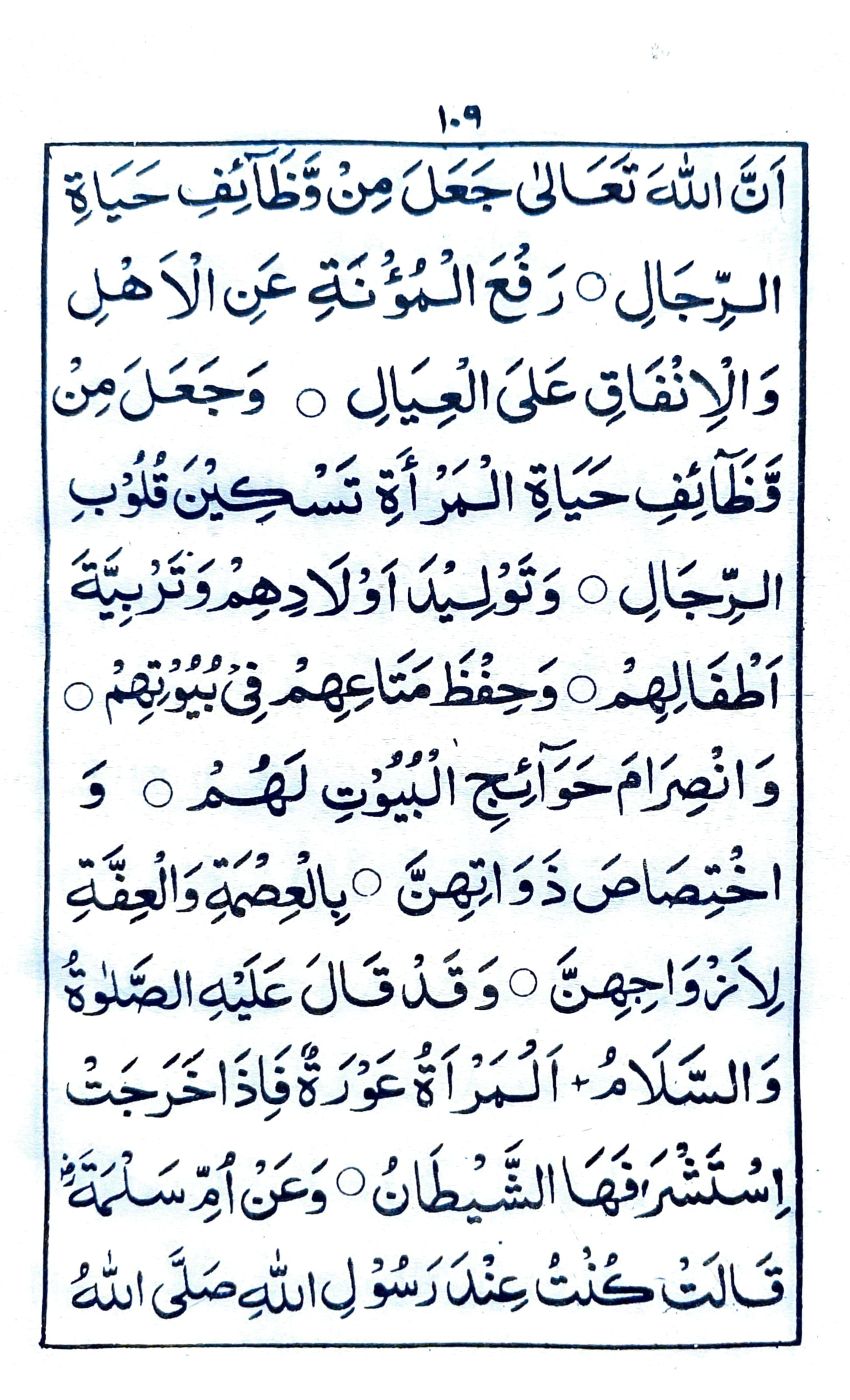 ١٠٩
اَنَّ اللّٰهَ تَعَالٰى جَعَلَ مِنْ وَّظَآئِفِ حَيَاةِ
الرِّجَالِ ○ رَفْعَ الْمُؤْنَةِ عَنِ الْاَهْلِ
وَالْاِنْفَاقِ عَلَى الْعِيَالِ ○ وَجَعَلَ مِنْ
وَّظَآئِفِ حَيَاةِ الْمَرْأَةِ تَسْكِيْنَ قُلُوْبِ
الرِّجَالِ ○ وَتَوْلِيْدَ اَوْلَادِهِمْ وَتَرْبِيَّةَ
اَطْفَالِهِمْ ○ وَحِفْظَ مَتَاعِهِمْ فِيْ بُيُوْتِهِمْ ○
وَانْصِرَامَ حَوَآئِجِ الْبُيُوْتِ لَهُمْ ○ وَ
اخْتِصَاصَ ذَوَاتِهِنَّ ○ بِالْعِصْمَةِ وَالْعِفَّةِ
لِاَزْوَاجِهِنَّ ○ وَقَدْ قَالَ عَلَيْهِ الصَّلٰوةُ
وَالسَّلَامُ + اَلْمَرْاَةُ عَوْرَةٌ فَاِذَا خَرَجَتْ
اِسْتَشْرَفَهَا الشَّيْطَانُ ○ وَعَنْ اُمِّ سَلْمَةَؓ
قَالَتْ كُنْتُ عِنْدَ رَسُوْلِ اللّٰهِ صَلَّى اللّٰهُ